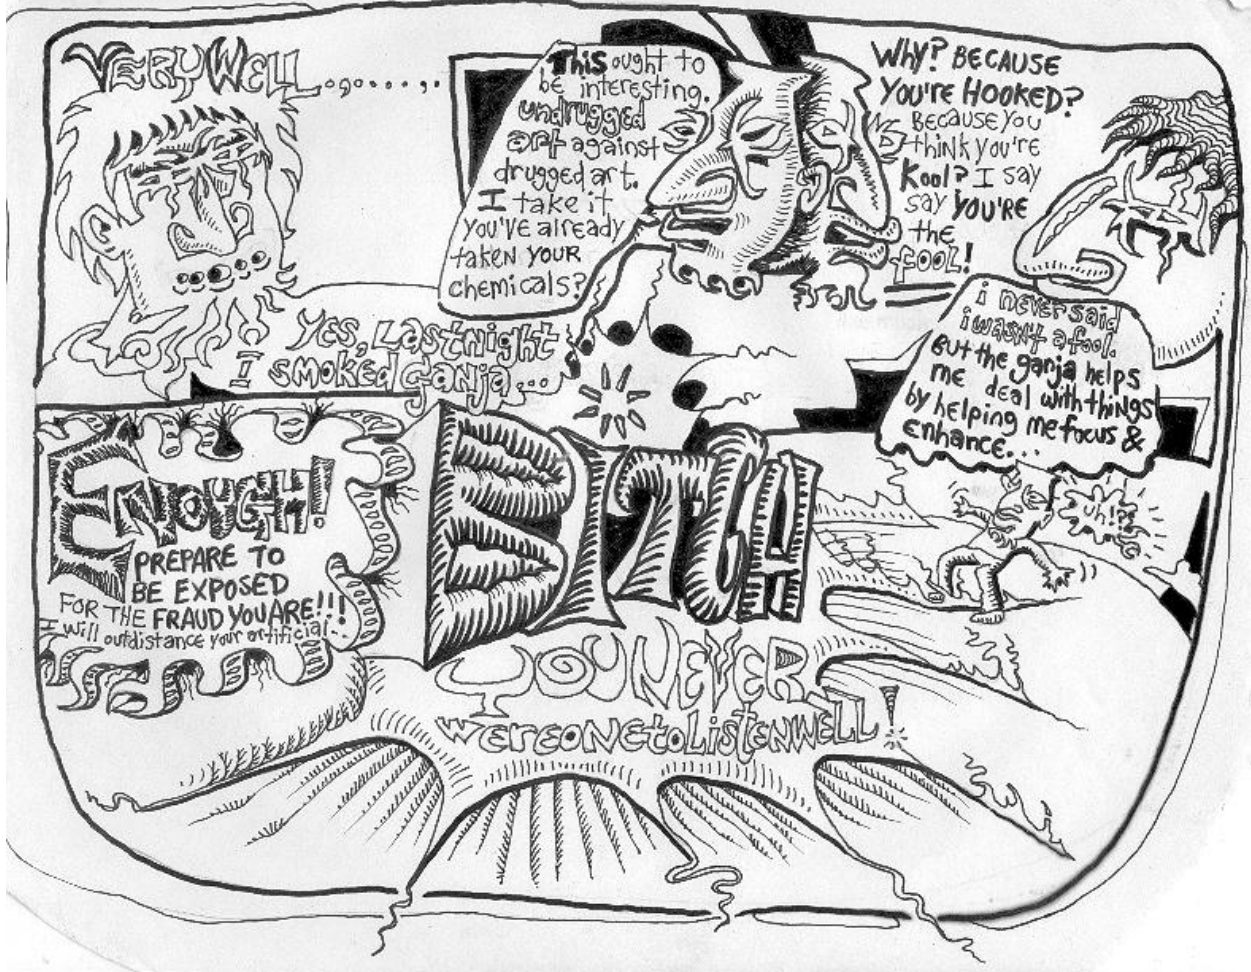 VERY WELL.........
This ought to
be interesting.
undrugged
art against
drugged art.
I take it
YOU'VE already
taken YOUR
chemicals?
WHY? BECAUSE
YOU'RE HOOKED?
BECAUSE YOU
think you're
Kool? I SAY
SAY YOU'RE
the
FOOL!
YES, LAST NIGHT
I SMOKED GANJA...
i never said
i wasn't a fool.
BUT the ganja helps
me deal with things
by helping me focus &
enhance...
ENOUGH!
PREPARE TO
BE EXPOSED
FOR THE FRAUD YOU ARE!!!
I will outdistance your artificial
uh!??
BITCH
YOU NEVER
WERE ONE to LiSTENWELL!